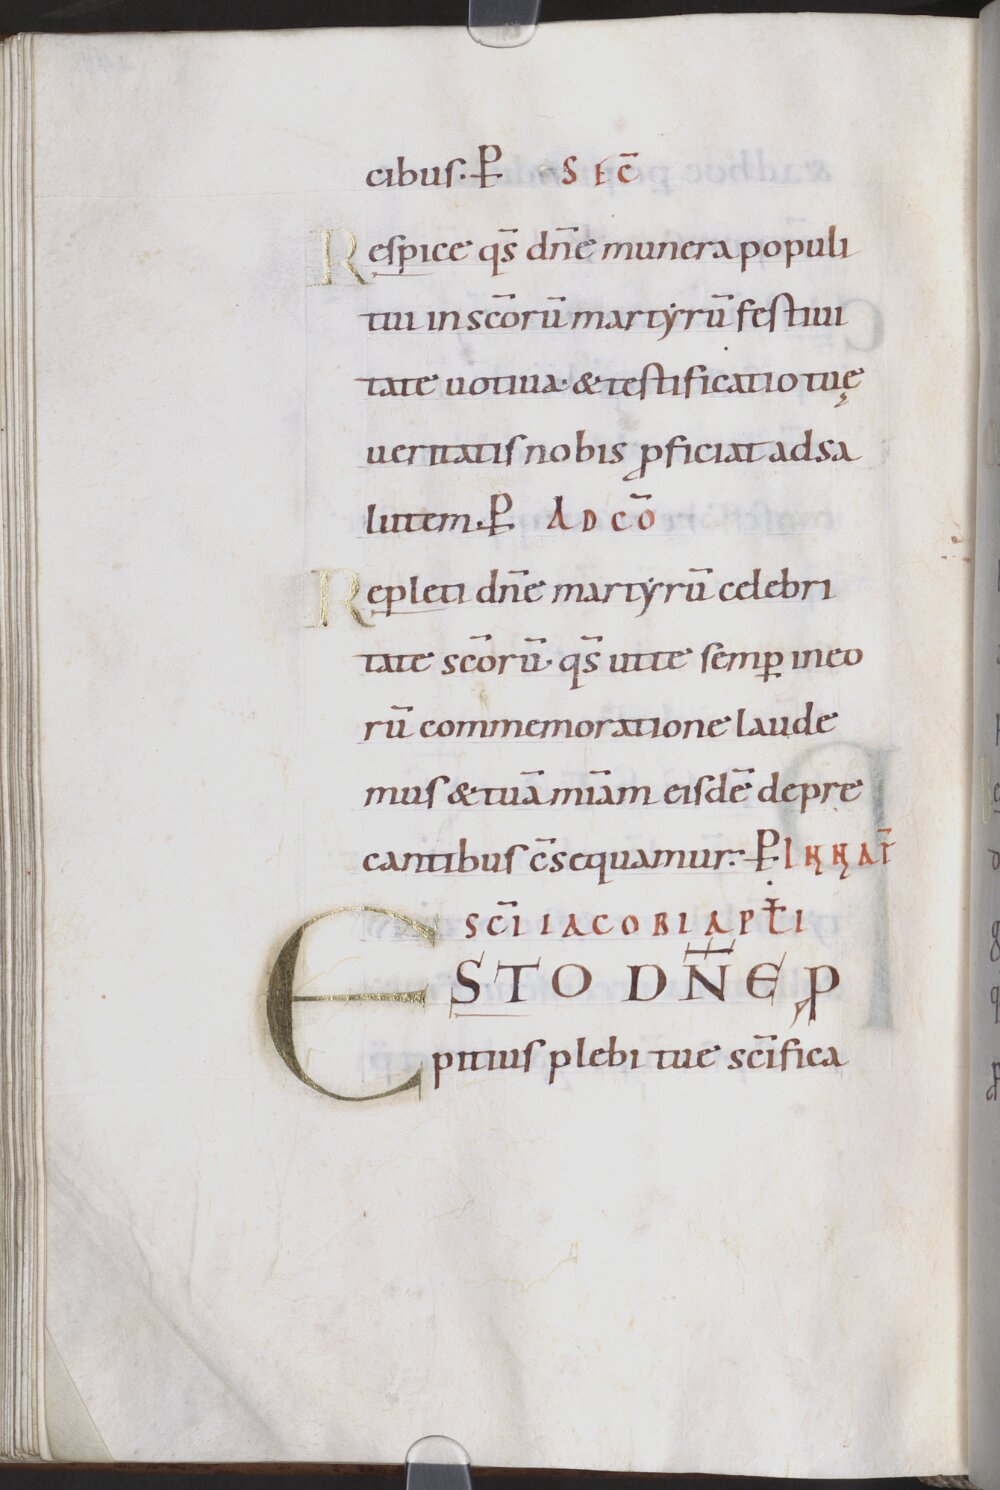 cibus·:P̵ SEC̄
Respice qs̄ dn̄e munera populi
tui in sc̄orū martẏrū festiui
tate uotiua· & testificatio tuę
ueritatis nobis ꝓficiat ad sa
lutem·:P̵ AD CŌ
Repleti dn̄e martẏrū celebri
tate sc̄orū· qs̄ ut te semp̲ in eo
rū commemoratione laude
mus & tuā mīam eisdē depre
cantibus c̄sequamur:·P̵ IN NAT̄
SC̄I IACOBI APT̄I
ESTO DN̄E Ꝓ
pitius plebi tue sc̄ifica